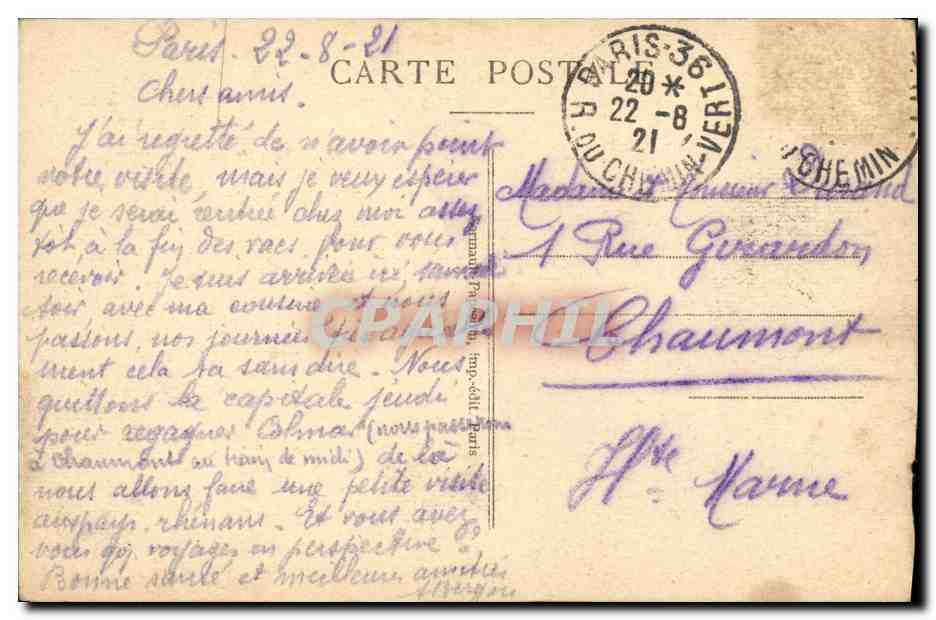 Paris. 22-8-21
CARTE POSTALE
Chers amis.
J'ai regretté de n'avoir point
votre visite, mais je veux espérer
que je serai rentrée chez moi assez
tôt à la fin des vacs. pour vous
recevoir. Je suis arrivée ici samedi
soir avec ma cousine et nous
passons nos journées
ment cela va sans dire. Nous
quittons la capitale jeudi
pour regagner Colmar (nous passerons
à Chaumont au train de midi) de là
nous allons faire une petite visite
aux pays rhénans. Et vous avez
vous qq. voyages en perspective?
Bonne santé et meilleures amitiés
PARIS-36
20 *
22 -8
21
R. DU CHEMIN-VERT
CHEMIN
Madame et Monsieur
1 Rue Girardon
Chaumont
Hte Marne
imp.-édit Paris
CPAPHIL